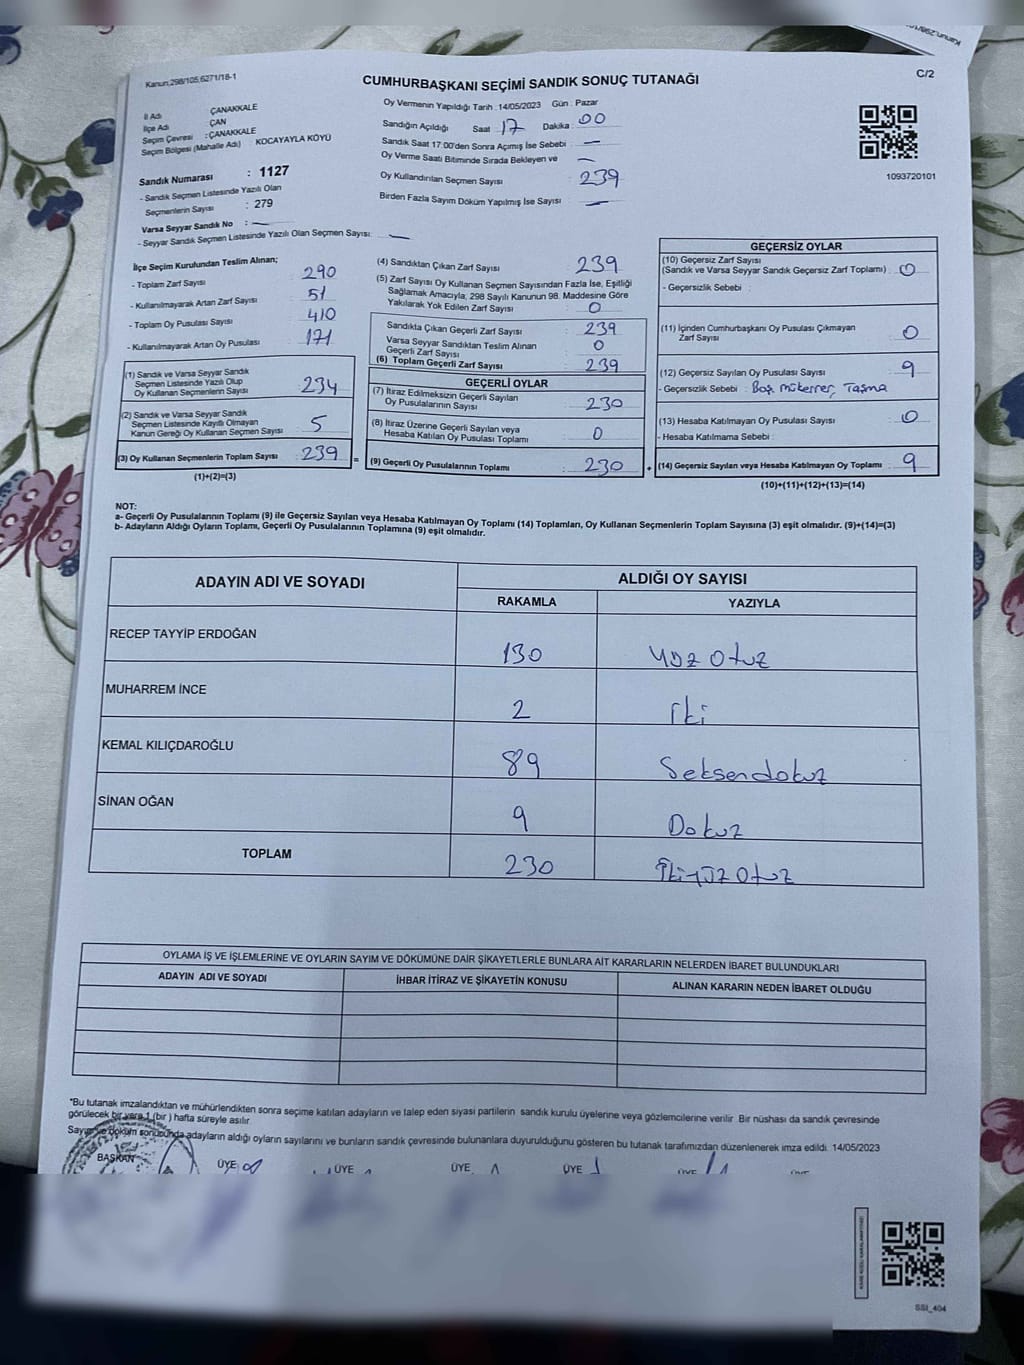 Kanun;298/105,6271/18-1
CUMHURBAŞKANI SEÇİMİ SANDIK SONUÇ TUTANAĞI
C/2
İl Adı ÇANAKKALE
İlçe Adı : ÇAN
Seçim Çevresi : ÇANAKKALE
Seçim Bölgesi (Mahalle Adı) KOCAYAYLA KÖYÜ
Oy Vermenin Yapıldığı Tarih : 14/05/2023 Gün : Pazar
Sandığın Açıldığı Saat 17 Dakika 00
Sandık Saat 17:00'den Sonra Açımış İse Sebebi : —
Oy Verme Saati Bitiminde Sırada Bekleyen ve —
Oy Kullandırılan Seçmen Sayısı : 239
Birden Fazla Sayım Döküm Yapılmış İse Sayısı : —
1093720101
Sandık Numarası : 1127
- Sandık Seçmen Listesinde Yazılı Olan
Seçmenlerin Sayısı : 279
Varsa Seyyar Sandık No : —
- Seyyar Sandık Seçmen Listesinde Yazılı Olan Seçmen Sayısı: —
İlçe Seçim Kurulundan Teslim Alınan;
- Toplam Zarf Sayısı : 290
- Kullanılmayarak Artan Zarf Sayısı : 51
- Toplam Oy Pusulası Sayısı : 410
- Kullanılmayarak Artan Oy Pusulası : 171
(1) Sandık ve Varsa Seyyar Sandık
Seçmen Listesinde Yazılı Olup
Oy Kullanan Seçmenlerin Sayısı : 234
(2) Sandık ve Varsa Seyyar Sandık
Seçmen Listesinde Kayıtlı Olmayan
Kanun Gereği Oy Kullanan Seçmen Sayısı : 5
(3) Oy Kullanan Seçmenlerin Toplam Sayısı : 239
(1)+(2)=(3)
(4) Sandıktan Çıkan Zarf Sayısı : 239
(5) Zarf Sayısı Oy Kullanan Seçmen Sayısından Fazla İse, Eşitliği
Sağlamak Amacıyla, 298 Sayılı Kanunun 98. Maddesine Göre
Yakılarak Yok Edilen Zarf Sayısı : 0
Sandıkta Çıkan Geçerli Zarf Sayısı : 239
Varsa Seyyar Sandıktan Teslim Alınan
Geçerli Zarf Sayısı : 0
(6) Toplam Geçerli Zarf Sayısı : 239
GEÇERLİ OYLAR
(7) İtiraz Edilmeksizin Geçerli Sayılan
Oy Pusulalarının Sayısı : 230
(8) İtiraz Üzerine Geçerli Sayılan veya
Hesaba Katılan Oy Pusulası Toplamı : 0
=
(9) Geçerli Oy Pusulalarının Toplamı : 230
+
GEÇERSİZ OYLAR
(10) Geçersiz Zarf Sayısı
(Sandık ve Varsa Seyyar Sandık Geçersiz Zarf Toplamı) : 0
- Geçersizlik Sebebi :
(11) İçinden Cumhurbaşkanı Oy Pusulası Çıkmayan
Zarf Sayısı : 0
(12) Geçersiz Sayılan Oy Pusulası Sayısı : 9
- Geçersizlik Sebebi : Boş, mükerrer, Taşma
(13) Hesaba Katılmayan Oy Pusulası Sayısı : 0
- Hesaba Katılmama Sebebi :
(14) Geçersiz Sayılan veya Hesaba Katılmayan Oy Toplamı : 9
(10)+(11)+(12)+(13)=(14)
NOT:
a- Geçerli Oy Pusulalarının Toplamı (9) ile Geçersiz Sayılan veya Hesaba Katılmayan Oy Toplamı (14) Toplamları, Oy Kullanan Seçmenlerin Toplam Sayısına (3) eşit olmalıdır. (9)+(14)=(3)
b- Adayların Aldığı Oyların Toplamı, Geçerli Oy Pusulalarının Toplamına (9) eşit olmalıdır.
ADAYIN ADI VE SOYADI
ALDIĞI OY SAYISI
RAKAMLA YAZIYLA
RECEP TAYYİP ERDOĞAN 130 yüz Otuz
MUHARREM İNCE 2 İki
KEMAL KILIÇDAROĞLU 89 Seksendokuz
SİNAN OĞAN 9 Dokuz
TOPLAM 230 İkiyüz Otuz
OYLAMA İŞ VE İŞLEMLERİNE VE OYLARIN SAYIM VE DÖKÜMÜNE DAİR ŞİKAYETLERLE BUNLARA AİT KARARLARIN NELERDEN İBARET BULUNDUKLARI
ADAYIN ADI VE SOYADI İHBAR İTİRAZ VE ŞİKAYETİN KONUSU ALINAN KARARIN NEDEN İBARET OLDUĞU
*Bu tutanak imzalandıktan ve mühürlendikten sonra seçime katılan adayların ve talep eden siyasi partilerin sandık kurulu üyelerine veya gözlemcilerine verilir. Bir nüshası da sandık çevresinde
görülecek bir yere 1 (bir ) hafta süreyle asılır.
Sayım ve döküm sonucunda adayların aldığı oyların sayılarını ve bunların sandık çevresinde bulunanlara duyurulduğunu gösteren bu tutanak tarafımızdan düzenlenerek imza edildi. 14/05/2023
BAŞKAN ÜYE ÜYE ÜYE ÜYE ÜYE ÜYE
SSI_404